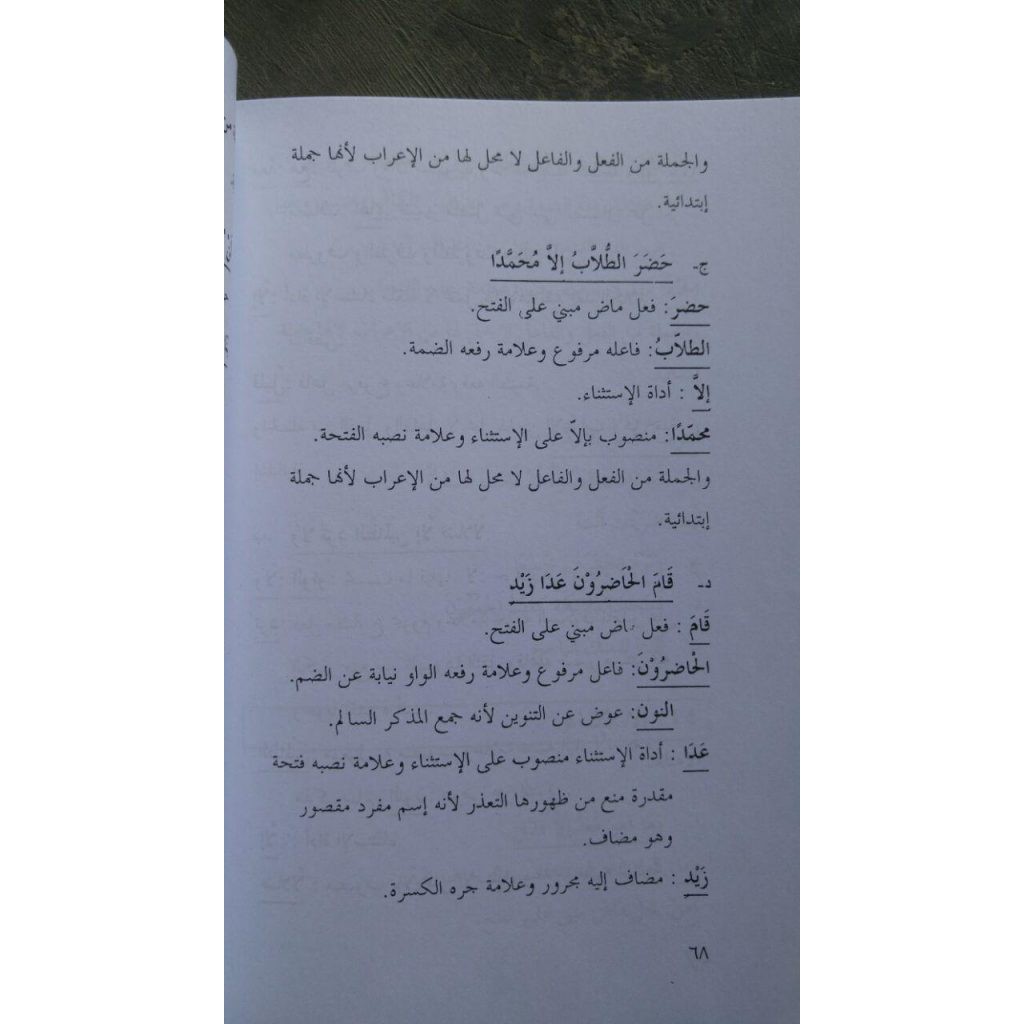 والجملة من الفعل والفاعل لا محل لها من الإعراب لأنها جملة
إبتدائية.
ج- حَضَرَ الطُّلاَّبُ إلاَّ مُحَمَّدًا
حضرَ: فعل ماض مبني على الفتح.
الطلاّبُ: فاعله مرفوع وعلامة رفعه الضمة.
إلاَّ : أداة الإستثناء.
محمّدًا: منصوب بإلاّ على الإستثناء وعلامة نصبه الفتحة.
والجملة من الفعل والفاعل لا محل لها من الإعراب لأنها جملة
إبتدائية.
د- قَامَ الْحَاضِرُوْنَ عَدَا زَيْد
قَامَ : فعل ماض مبني على الفتح.
الْحَاضِرُوْنَ: فاعل مرفوع وعلامة رفعه الواو نيابة عن الضم.
النون: عوض عن التنوين لأنه جمع المذكر السالم.
عَدَا : أداة الإستثناء منصوب على الإستثناء وعلامة نصبه فتحة
مقدرة منع من ظهورها التعذر لأنه إسم مفرد مقصور
وهو مضاف.
زَيْد : مضاف إليه مجرور وعلامة جره الكسرة.
٦٨